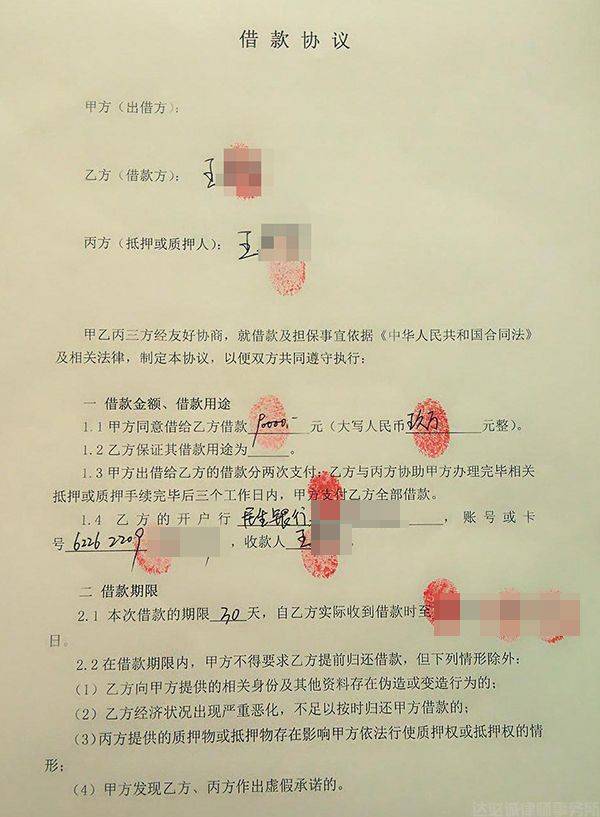 借款协议
甲方（出借方）：
乙方（借款方）： 王
丙方（抵押或质押人）： 王
甲乙丙三方经友好协商，就借款及担保事宜依据《中华人民共和国合同法》
及相关法律，制定本协议，以便双方共同遵守执行：
一 借款金额、借款用途
1.1 甲方同意借给乙方借款 90000.- 元（大写人民币 玖万 元整）。
1.2 乙方保证其借款用途为_____。
1.3 甲方出借给乙方的借款分两次支付：乙方与丙方协助甲方办理完毕相关
抵押或质押手续完毕后三个工作日内，甲方支付乙方全部借款。
1.4 乙方的开户行 民生银行 ，账号或卡
号 6226 2209 ，收款人 王 .
二 借款期限
2.1 本次借款的期限 30 天，自乙方实际收到借款时至
日。
2.2 在借款期限内，甲方不得要求乙方提前归还借款，但下列情形除外：
（1）乙方向甲方提供的相关身份及其他资料存在伪造或变造行为的；
（2）乙方经济状况出现严重恶化，不足以按时归还甲方借款的；
（3）丙方提供的质押物或抵押物存在影响甲方依法行使质押权或抵押权的情
形；
（4）甲方发现乙方、丙方作出虚假承诺的。
律师事务所